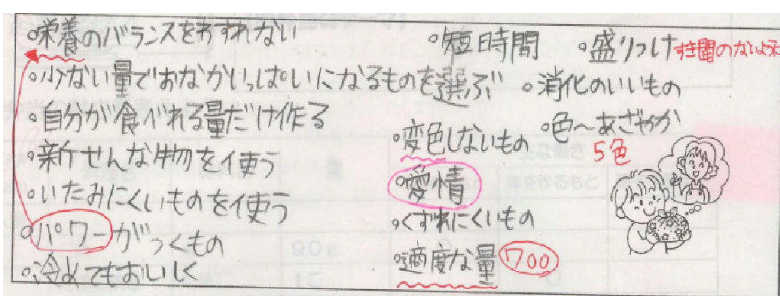 ◦栄養のバランスをわすれない
◦少ない量でおなかいっぱいになるものを選ぶ
◦自分が食べれる量だけ作る
◦新せんな物を使う
◦いたみにくいものを使う
◦パワーがつくもの
◦冷めてもおいしく
◦短時間
◦盛りつけ すき間のないよう
◦消化のいいもの
◦変色しないもの
◦色〜あざやか
5色
◦愛情
◦くずれにくいもの
◦適度な量 700